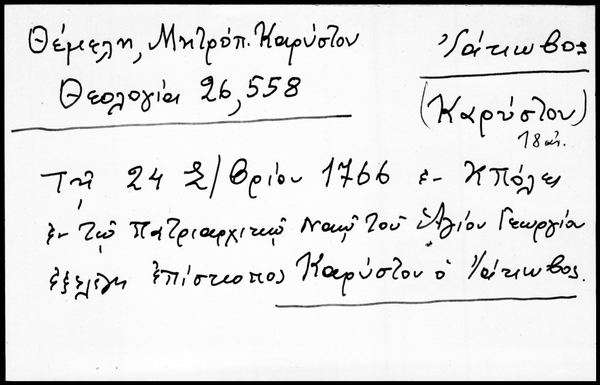 Θέμελη, Μητρόπ. Καρύστου
Θεολογία 26, 558
Ἰάκωβος
(Καρύστου)
18 αἰ.
Τῇ 24 Σ/βρίου 1766 ἐν Κπόλει
ἐν τῷ Πατριαρχικῷ Ναῷ τοῦ Ἁγίου Γεωργίου
ἐξελέγη ἐπίσκοπος Καρύστου ὁ Ἰάκωβος.